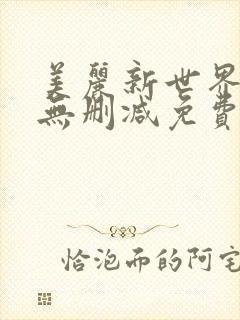 美麗新世界
無刪減免費
恰泡而的阿宅